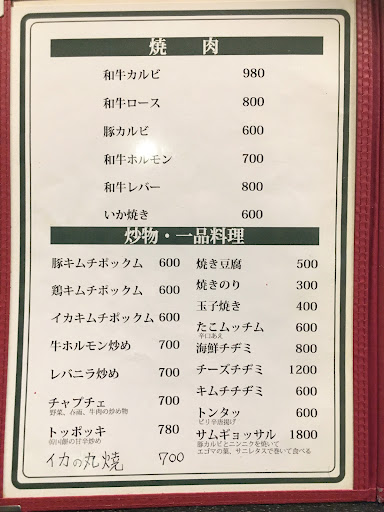 焼 肉
和牛カルビ 980
和牛ロース 800
豚カルビ 600
和牛ホルモン 700
和牛レバー 800
いか焼き 600
炒物・一品料理
豚キムチポックム 600
鶏キムチポックム 600
イカキムチポックム 600
牛ホルモン炒め 700
レバニラ炒め 700
チャプチェ 700
野菜、春雨、牛肉の炒め物
トッポッキ 780
韓国餅の甘辛炒め
イカの丸焼 700
焼き豆腐 500
焼きのり 300
玉子焼き 400
たこムッチム 600
辛口あえ
海鮮チヂミ 800
チーズチヂミ 1200
キムチチヂミ 600
トンタッ 600
ピリ辛唐揚げ
サムギョッサル 1800
豚カルビとニンニクを焼いて
エゴマの葉、サニレタスで巻いて食べる